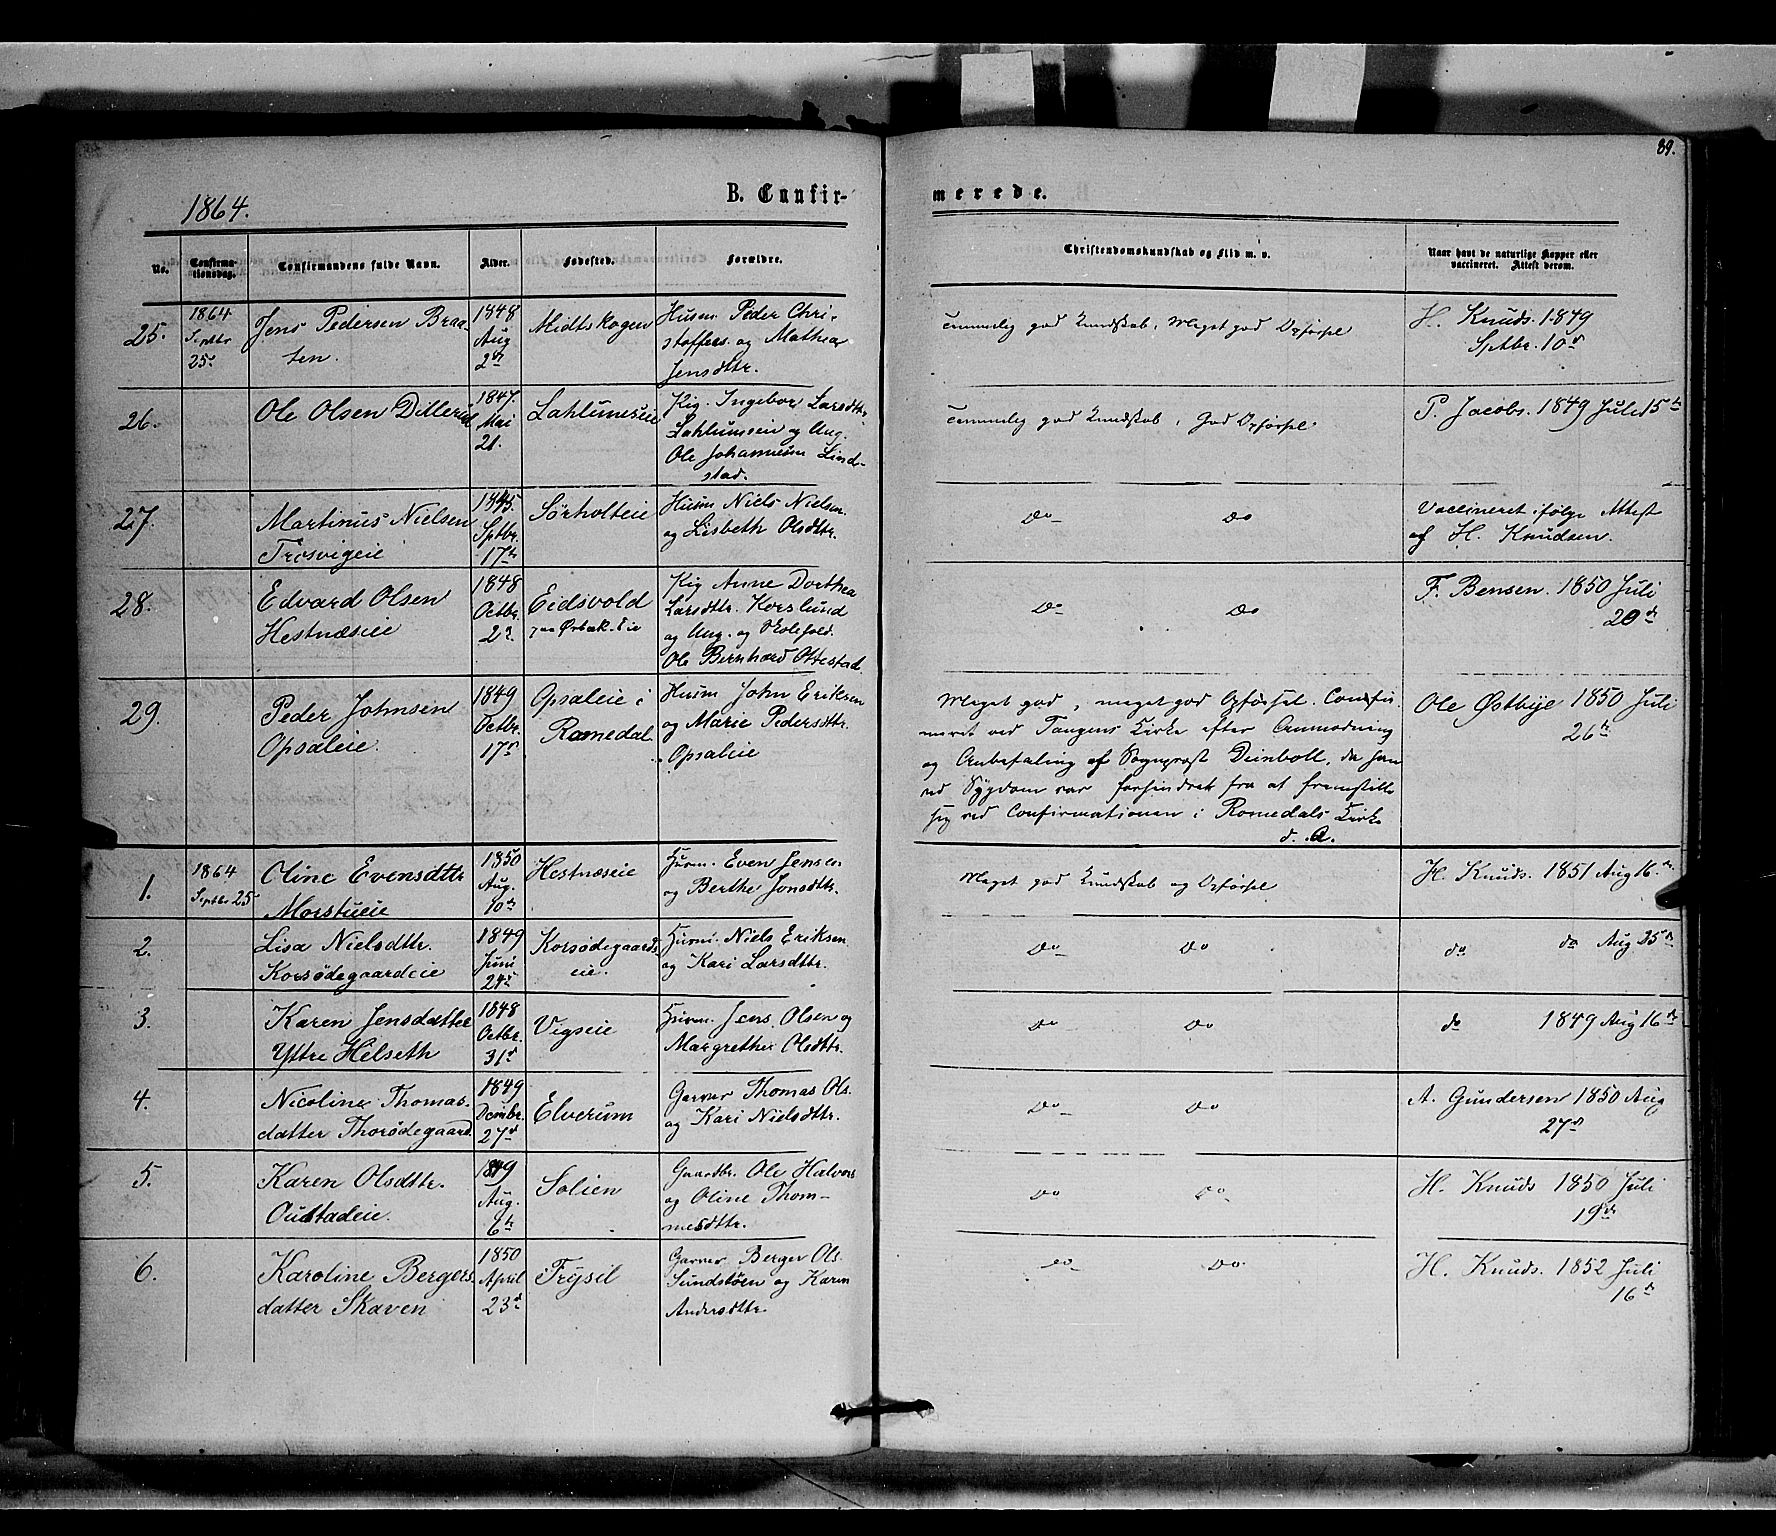 89.
1864.
B. Confir-
merede.
No.
Confirma-
tionsdag.
Confirmandens fulde Navn.
Alder.
Fødested.
Forældre.
Christendomskundskab og Flid m. v.
Naar havt de naturlige Kopper eller
vaccineret. Attest derom.
25.
1864
Septbr
25d
Jens Pedersen Braa-
ten.
1848
Aug
2d
Midtskogen
Husm. Peder Chri-
stoffers. og Mathea
Jensdttr.
Temmelig god Kundskab, Meget god Opførsel
H. Knuds. 1849
Sptbr. 10d
26.
Ole Olsen Dillerud
1847.
Mai
21.
Lahlumseie
Pig. Ingebor Larsdttr.
Lahlumseie og Ung.
Ole Johannesen Lind-
stad.
Temmelig god Kundskab, God Opførsel.
P. Jacobs. 1849 Juli 15de
27.
Martinus Nielsen
Trosvigeie
1845.
Sptbr.
17de
Sørholteie
Husm Niels Nielsen
og Lisbeth Olsdttr.
Do
Do
Vaccineret ifølge Attest
af H. Knudsen.
28.
Edvard Olsen
Hestnæseie
1848
Octbr.
22.
Eidsvold
Pig Anne Dorthea
Larsdttr. Korslund
og Ung. og
Ole Bernhard Ottestad.
Do
Do
F. Bensen. 1850 Juli
20d
29.
Peder Johnsen
Opsaleie.
1849
Octbr.
17d
Opsaleie i
Romedal.
Husm John Eriksen
og Marie Pedersdttr.
Opsaleie
Meget god, meget god Opførsel. Confir-
meret ved Tangens Kirke efter Anmodning
og Anbefaling af Sognprest Deinboll, da han
ved Sygdom var forhindret fra at fremstille
sig ved Confirmationen i Romedals Kirke
d. A.
Ole Østbye 1850 Juli
26de
1.
1864
Septbr 25
Oline Evensdttr
Morstueie
1850
Aug.
10de
Hestnæseie
Husm. Even Jensen
og Berthe Jonsdttr.
Meget god Kundskab og Opførsel
H. Knuds. 1851 Aug 16.de
2.
Lisa Nielsdttr.
Korsødegaardeie
1849
Juni
24d
Korsødegaards
eie.
Husm. Niels Eriksen
og Kari Larsdttr.
Do
Do
do
do Aug 25d
3.
Karen Jensdatter
Yttre Helseth
1848
Octbr.
31d
Vigseie
Husm. Jens Olsen og
Margrethe Olsdttr.
Do
Do
do
1849 Aug 16d
4.
Nicoline Thomas-
datter Thorødegaard.
1849
Decmbr.
27d
Elverum
Garver Thomas Ols.
og Kari Nielsdttr.
Do
Do
A. Gundersen 1850 Aug
27d
5.
Karen Olsdttr.
Oustadeie.
1849
Aug.
6te
Solien
Gaardbr. Ole Halvors
og Oline Thom-
mesdttr.
Do
Do
H. Knuds 1850 Juli
19de
6.
Karoline Bergers
datter Skaven
1850
April
23d
Trysil
Garver Berger Ols
Sundstøen og Karen
Andersdttr.
Do
Do
H. Knuds. 1852 Juli
16d